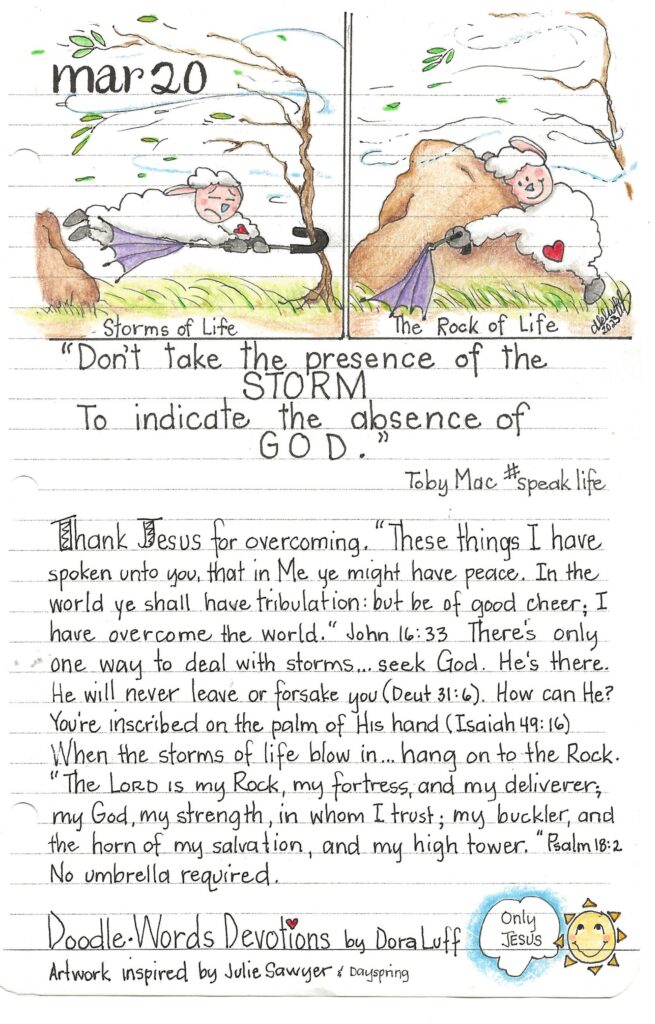 mar 20
Storms of Life
The Rock of Life
2023
"Don't take the presence of the
STORM
To indicate the absence of
GOD."
Toby Mac #speak life
Thank Jesus for overcoming. "These things I have
spoken unto you, that in Me ye might have peace. In the
world ye shall have tribulation: but be of good cheer; I
have overcome the world." John 16:33 There's only
one way to deal with storms... seek God. He's there.
He will never leave or forsake you (Deut 31:6). How can He?
You're inscribed on the palm of His hand (Isaiah 49:16)
When the storms of life blow in... hang on to the Rock.
"The LORD is my Rock, my fortress, and my deliverer;
my God, my strength, in whom I trust; my buckler, and
the horn of my salvation, and my high tower." Psalm 18:2
No umbrella required.
Doodle·Words Devotions by Dora Luff
Only
JESUS
Artwork inspired by Julie Sawyer & Dayspring